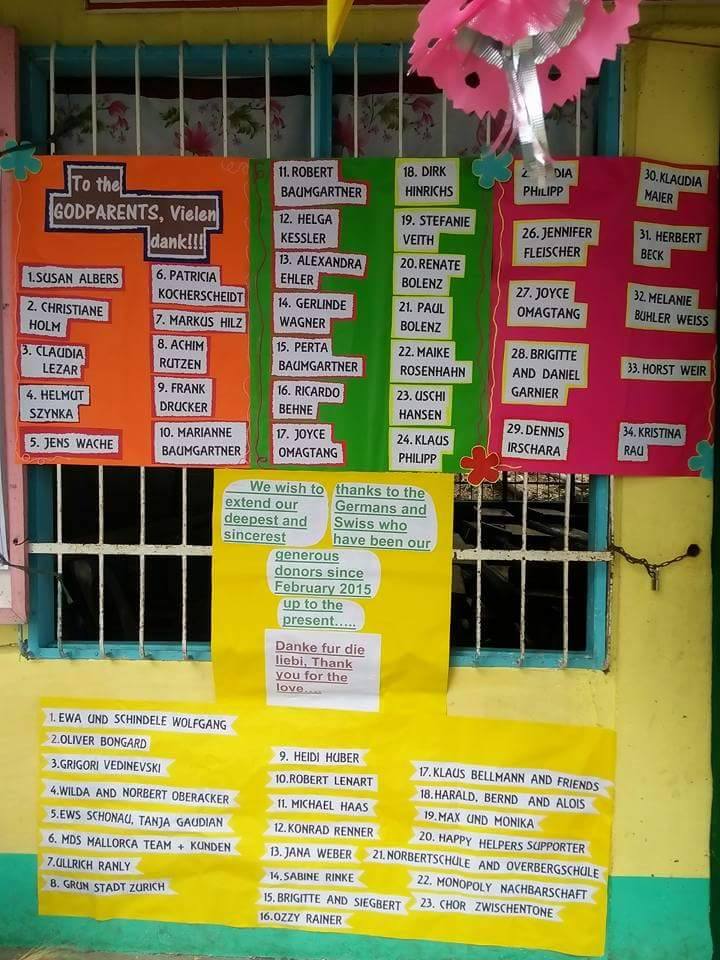 To the
GODPARENTS, Vielen
dank!!!
1.SUSAN ALBERS
2. CHRISTIANE
HOLM
3. CLAUDIA
LEZAR
4. HELMUT
SZYNKA
5. JENS WACHE
6. PATRICIA
KOCHERSCHEIDT
7. MARKUS HILZ
8. ACHIM
RUTZEN
9. FRANK
DRUCKER
10. MARIANNE
BAUMGARTNER
11. ROBERT
BAUMGARTNER
12. HELGA
KESSLER
13. ALEXANDRA
EHLER
14. GERLINDE
WAGNER
15. PERTA
BAUMGARTNER
16. RICARDO
BEHNE
17. JOYCE
OMAGTANG
18. DIRK
HINRICHS
19. STEFANIE
VEITH
20. RENATE
BOLENZ
21. PAUL
BOLENZ
22. MAIKE
ROSENHAHN
23. USCHI
HANSEN
24. KLAUS
PHILIPP
PHILIPP
26. JENNIFER
FLEISCHER
27. JOYCE
OMAGTANG
28. BRIGITTE
AND DANIEL
GARNIER
29. DENNIS
IRSCHARA
30. KLAUDIA
MAIER
31. HERBERT
BECK
32. MELANIE
BUHLER WEISS
33. HORST WEIR
34. KRISTINA
RAU
We wish to
extend our
deepest and
sincerest
thanks to the
Germans and
Swiss who
have been our
generous
donors since
February 2015
up to the
present.....
Danke fur die
liebi, Thank
you for the
love....
1. EWA UND SCHINDELE WOLFGANG
2.OLIVER BONGARD
3.GRIGORI VEDINEVSKI
4.WILDA AND NORBERT OBERACKER
5.EWS SCHONAU, TANJA GAUDIAN
6. MDS MALLORCA TEAM + KUNDEN
7.ULLRICH RANLY
8. GRUN STADT ZURICH
9. HEIDI HUBER
10.ROBERT LENART
11. MICHAEL HAAS
12.KONRAD RENNER
13. JANA WEBER
14. SABINE RINKE
15. BRIGITTE AND SIEGBERT
16.OZZY RAINER
17.KLAUS BELLMANN AND FRIENDS
18.HARALD, BERND AND ALOIS
19.MAX UND MONIKA
20. HAPPY HELPERS SUPPORTER
21.NORBERTSCHULE AND OVERBERGSCHULE
22. MONOPOLY NACHBARSCHAFT
23. CHOR ZWISCHENTONE